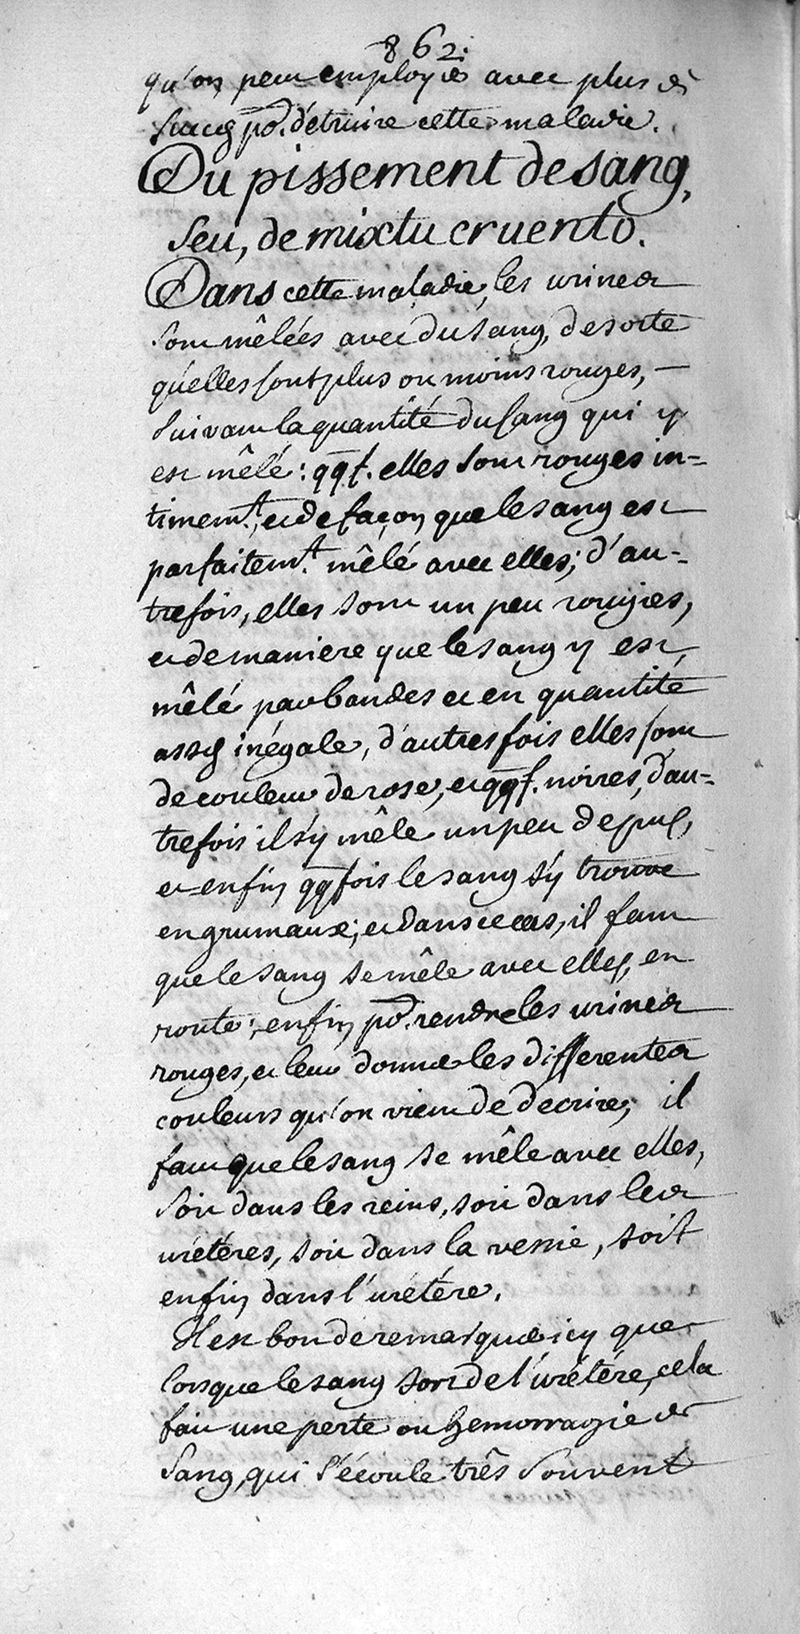 862.
qu'on peut employer avec plus de
succès po.r détruire cette maladie.
Du pissement de sang,
seu, de mixtu cruento.
Dans cette maladie, les urines
sont mêlées avec du sang, desorte
qu'elles sont plus ou moins rouges, —
suivant la quantité du sang qui y
est mêlé: qqf. elles sont rouges in=
timem.t, et de façon que le sang est
parfaitem.t mêlé avec elles; d'au-
trefois, elles sont un peu rougies,
et de maniere que le sang y est,
mêlé par bandes et en quantité
assés inégale, d'autres fois elles sont
de couleur de rose, et qqf. noires, d'au=
trefois il s'y mêle un peu de pus,
et enfin qqfois le sang s'y trouve
en grumaux; et dans ce cas, il faut
que le sang se mêle avec elles, en
route; enfin po.r rendre les urines
rouges, et leur donner les differentes
couleurs qu'on vient de decrire; il
faut que le sang se mêle avec elles,
soit dans les reins, soit dans les
urétéres, soit dans la vessie, soit
enfin dans l'urétére.
Il est bon de remarquer icy que
lorsque le sang sort de l'urétére, cela
fait une perte ou hemorragie de
sang, qui s'écoule três souvent